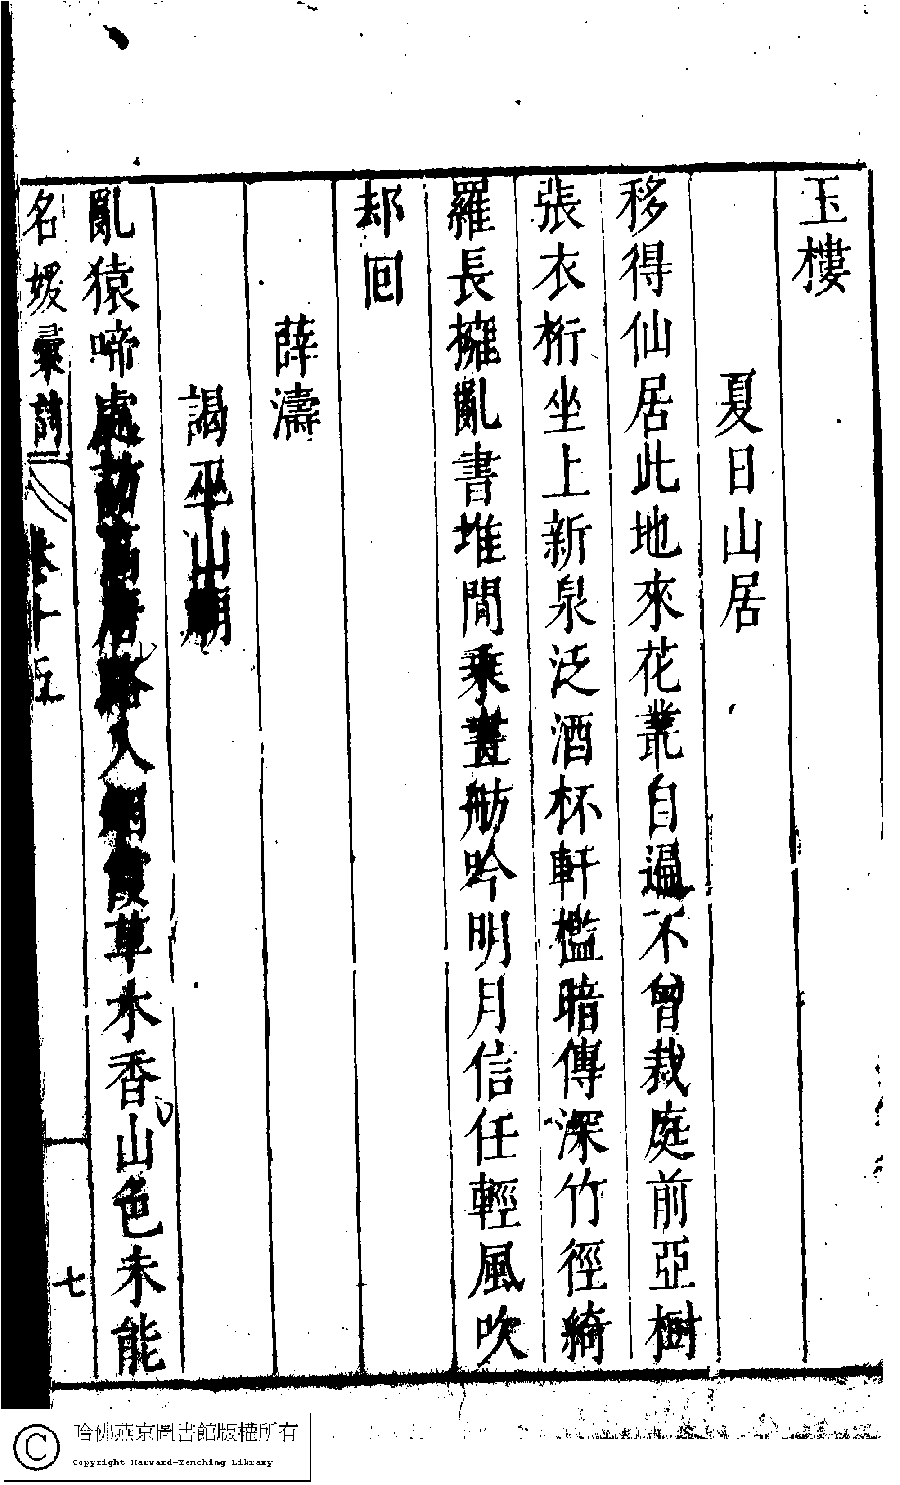 玉樓
夏日山居
移得仙居此地來花叢自遍不曾栽庭前亞樹
張衣桁坐上新泉泛酒杯軒檻暗傳深竹徑綺
羅長擁亂書堆閒乘畫舫吟明月信任輕風吹
却回
薛濤
謁巫山廟
亂猿啼處訪高唐路入烟霞草木香山色未能
名媛彙詩 卷十五 七
哈佛燕京圖書館版權所有
Copyright Harvard-Yenching Library